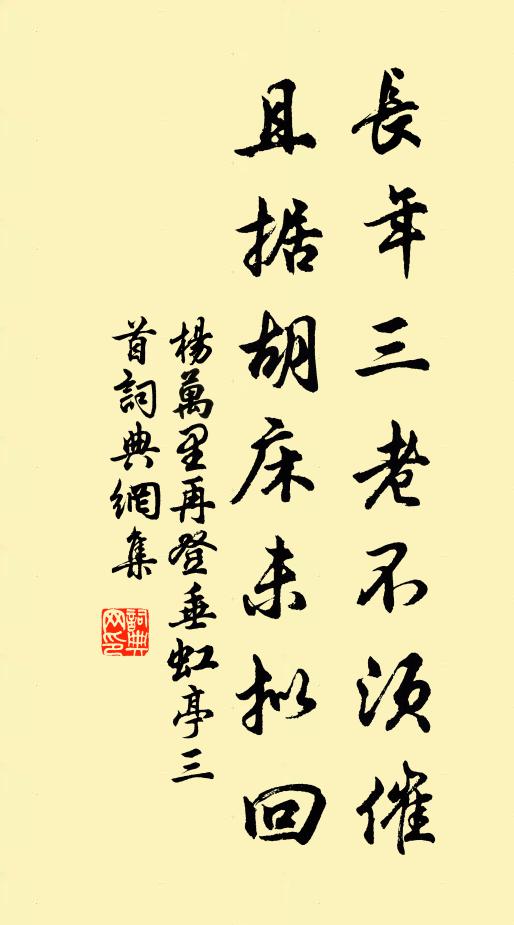 長年三老不須催
且据胡床未拟回
楊萬里再登垂虹亭三
首詞典網集
詞典
网印